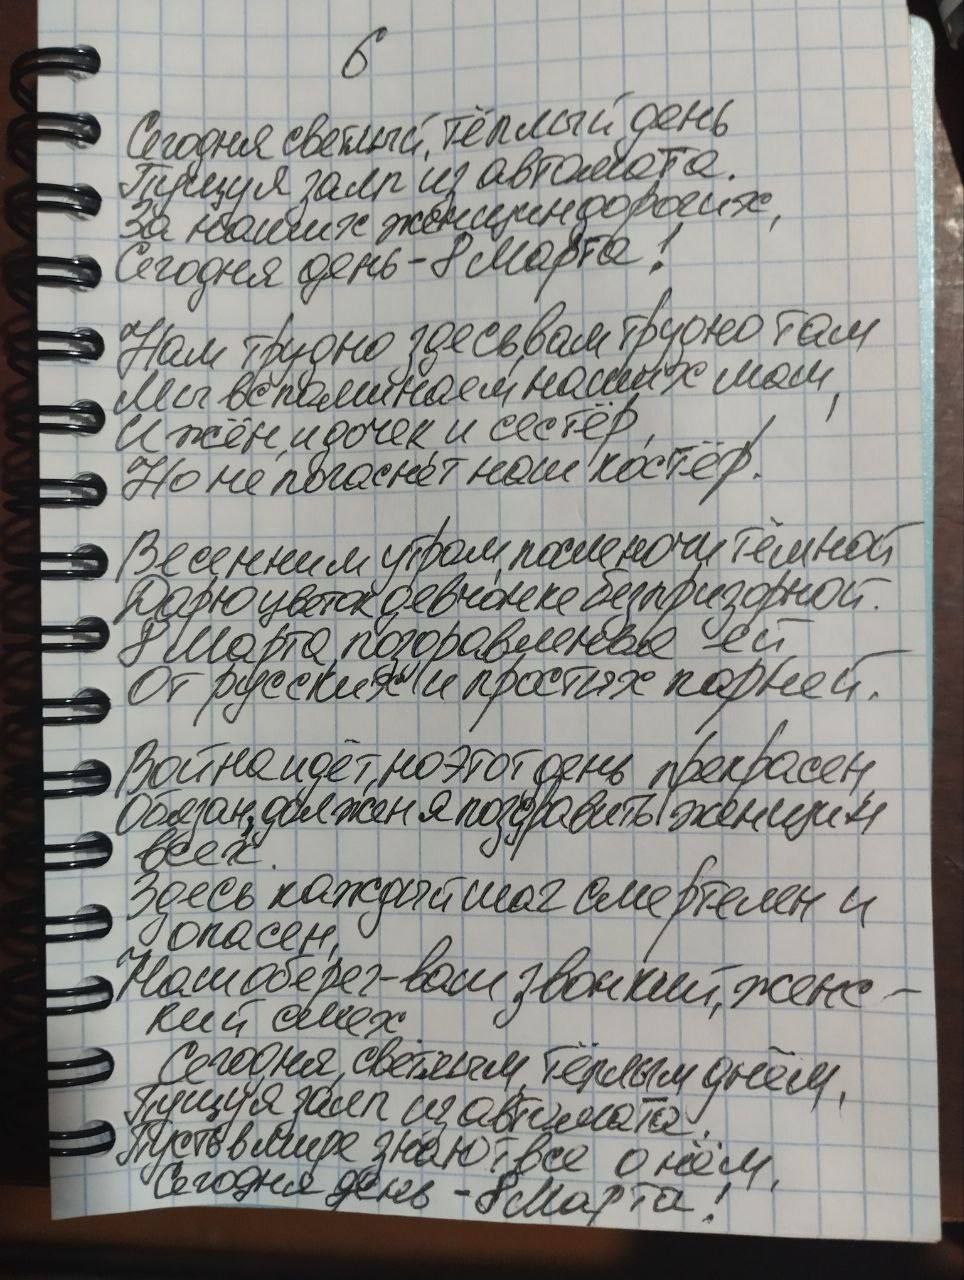 6
Сегодня светлый, тёплый день
Пущу я залп из автомата.
За наших женщин дорогих,
Сегодня день - 8 Марта!
Нам трудно здесь, вам трудно там
Мы вспоминаем наших мам,
И жён, и дочек, и сестёр,
Но не погаснет наш костёр.
Весенним утром, после ночи тёмной
Дарю цветок девчонке безпризорной.
8 Марта, поздравленье ей
От русских и простых парней.
Война идёт, но этот день прекрасен,
Обязан, должен я поздравить женщин
всех.
Здесь каждый шаг смертелен и
опасен,
Наш оберег - ваш звонкий, женс-
кий смех
Сегодня, светлым, тёплым днём,
Пущу я залп из автомата.
Пусть в мире знают все о нём,
Сегодня день - 8 Марта!